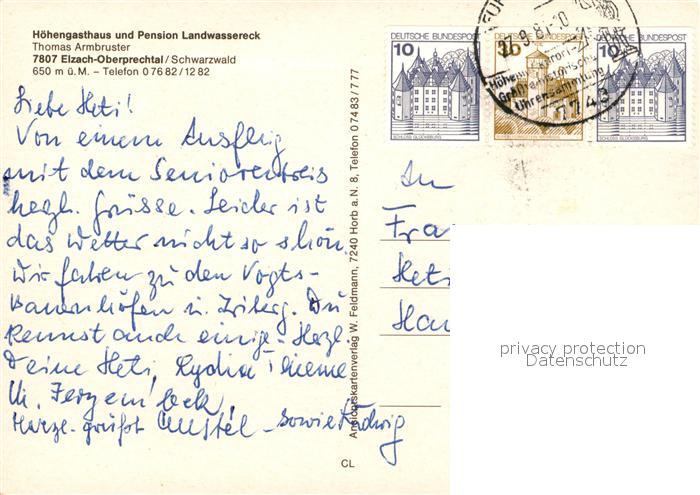 Höhengasthaus und Pension Landwassereck
Thomas Armbruster
7807 Elzach-Oberprechtal/Schwarzwald
650 m ü.M. – Telefon 07682/1282
Liebe Heti!
Von einem Ausflug
mit dem Seniorenkreis
herzl. Grüsse. Leider ist
das Wetter nicht so schön.
Wir fahren zu den Vogts-
bauernhöfen u. Triberg. Du
kennst auch einige. Herzl.
Deine Heti, Lydia
Herzl. grüßt sowie Ludwig
Ansichtskartenverlag W. Feldmann, 7240 Horb a. N. 8, Telefon 07483/777
CL
DEUTSCHE BUNDESPOST
10
SCHLOSS GLÜCKSBURG
DEUTSCHE BUNDESPOST
10
SCHLOSS GLÜCKSBURG
Uhrensammlung
7743
An
Fra
Heti
Hau
privacy protection
Datenschutz